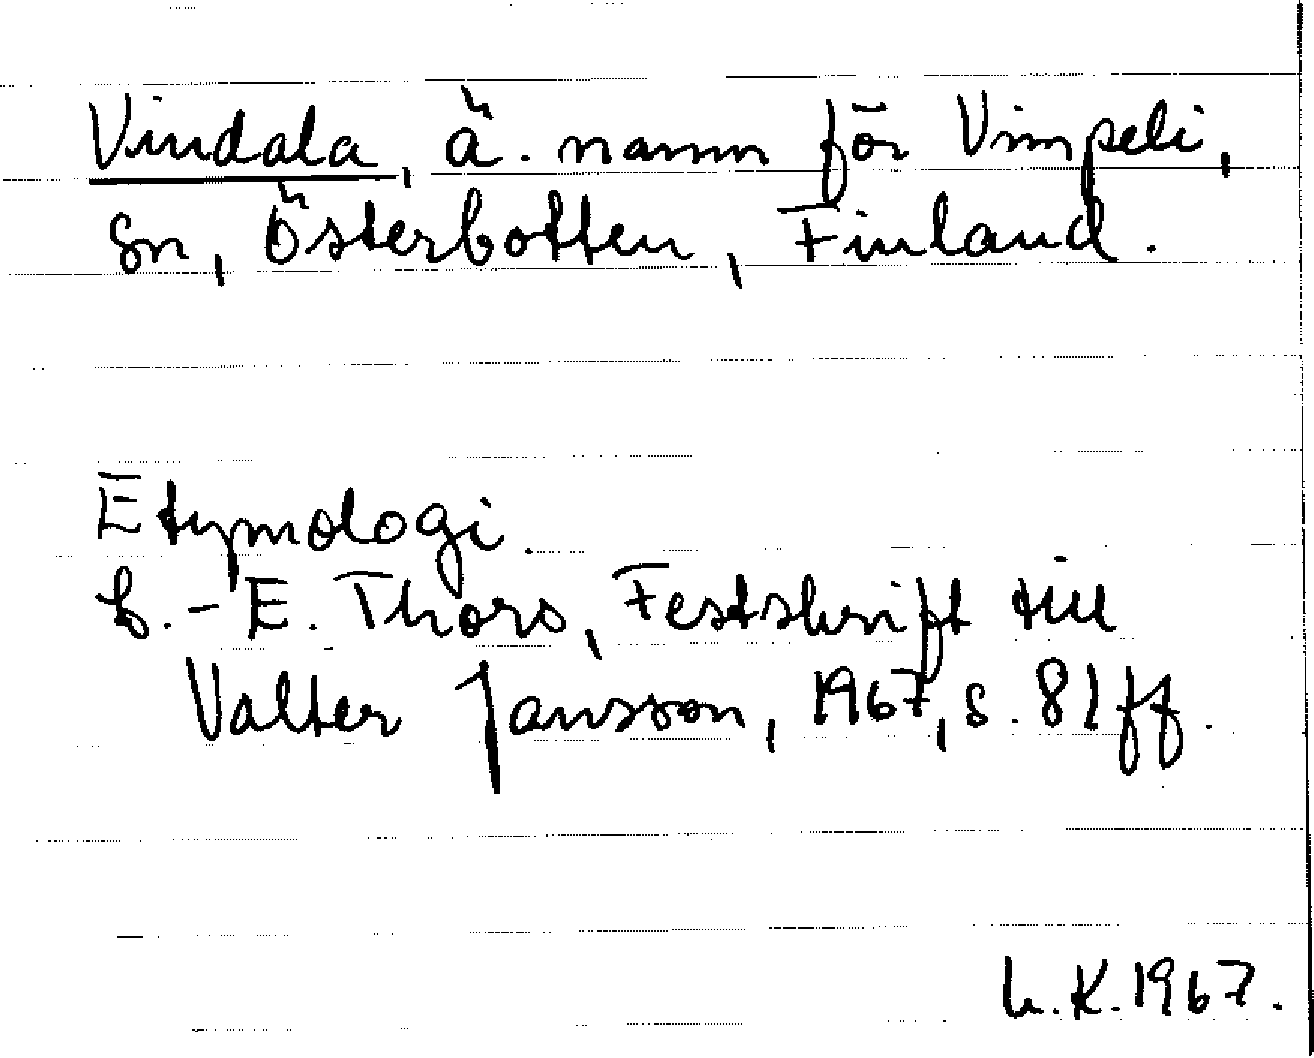 Vindala, ä. namn för Vimpeli,
sn, Österbotten, Finland.
Etymologi
C.-E. Thors, Festskrift till
Valter Jansson, 1967, s. 81 ff.
L.K. 1967.